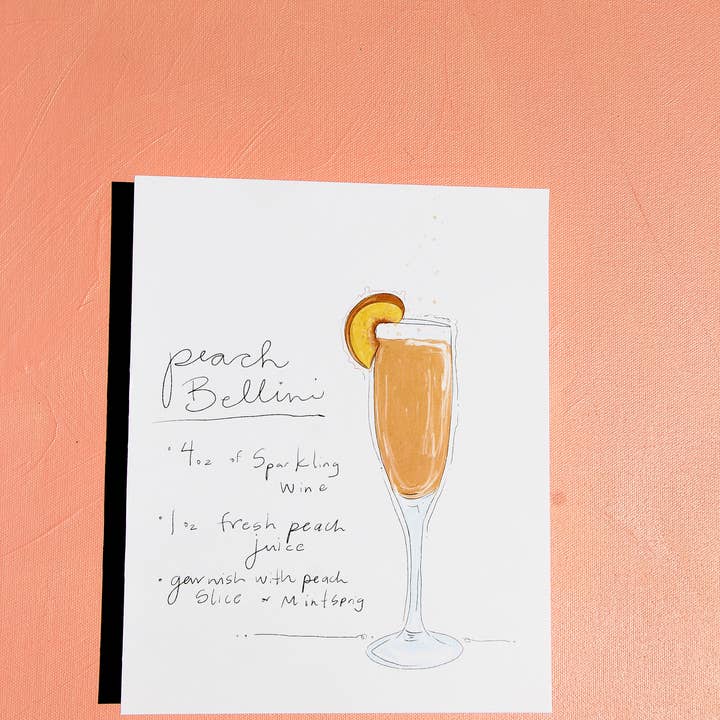 peach
Bellini
• 4oz of Sparkling
Wine
• 1 oz fresh peach
juice
• garnish with peach
Slice or Mintsprig